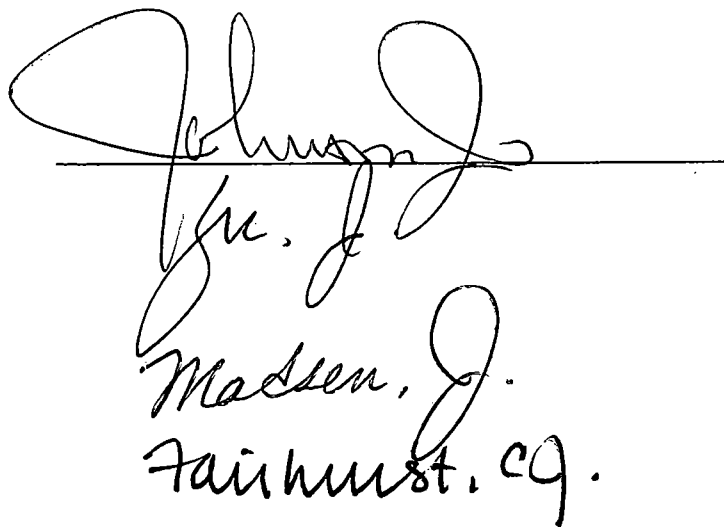 Johnson, J.
Yu, J.
Madsen, J.
Fairhurst, CJ.